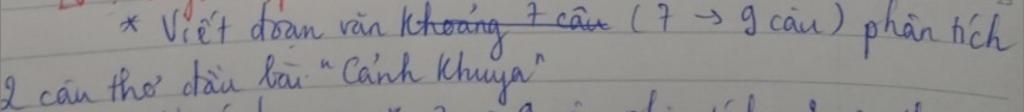 * Viết đoạn văn khoảng 7 câu (7 → 9 câu) phân tích
2 câu thơ đầu bài "Cảnh Khuya"